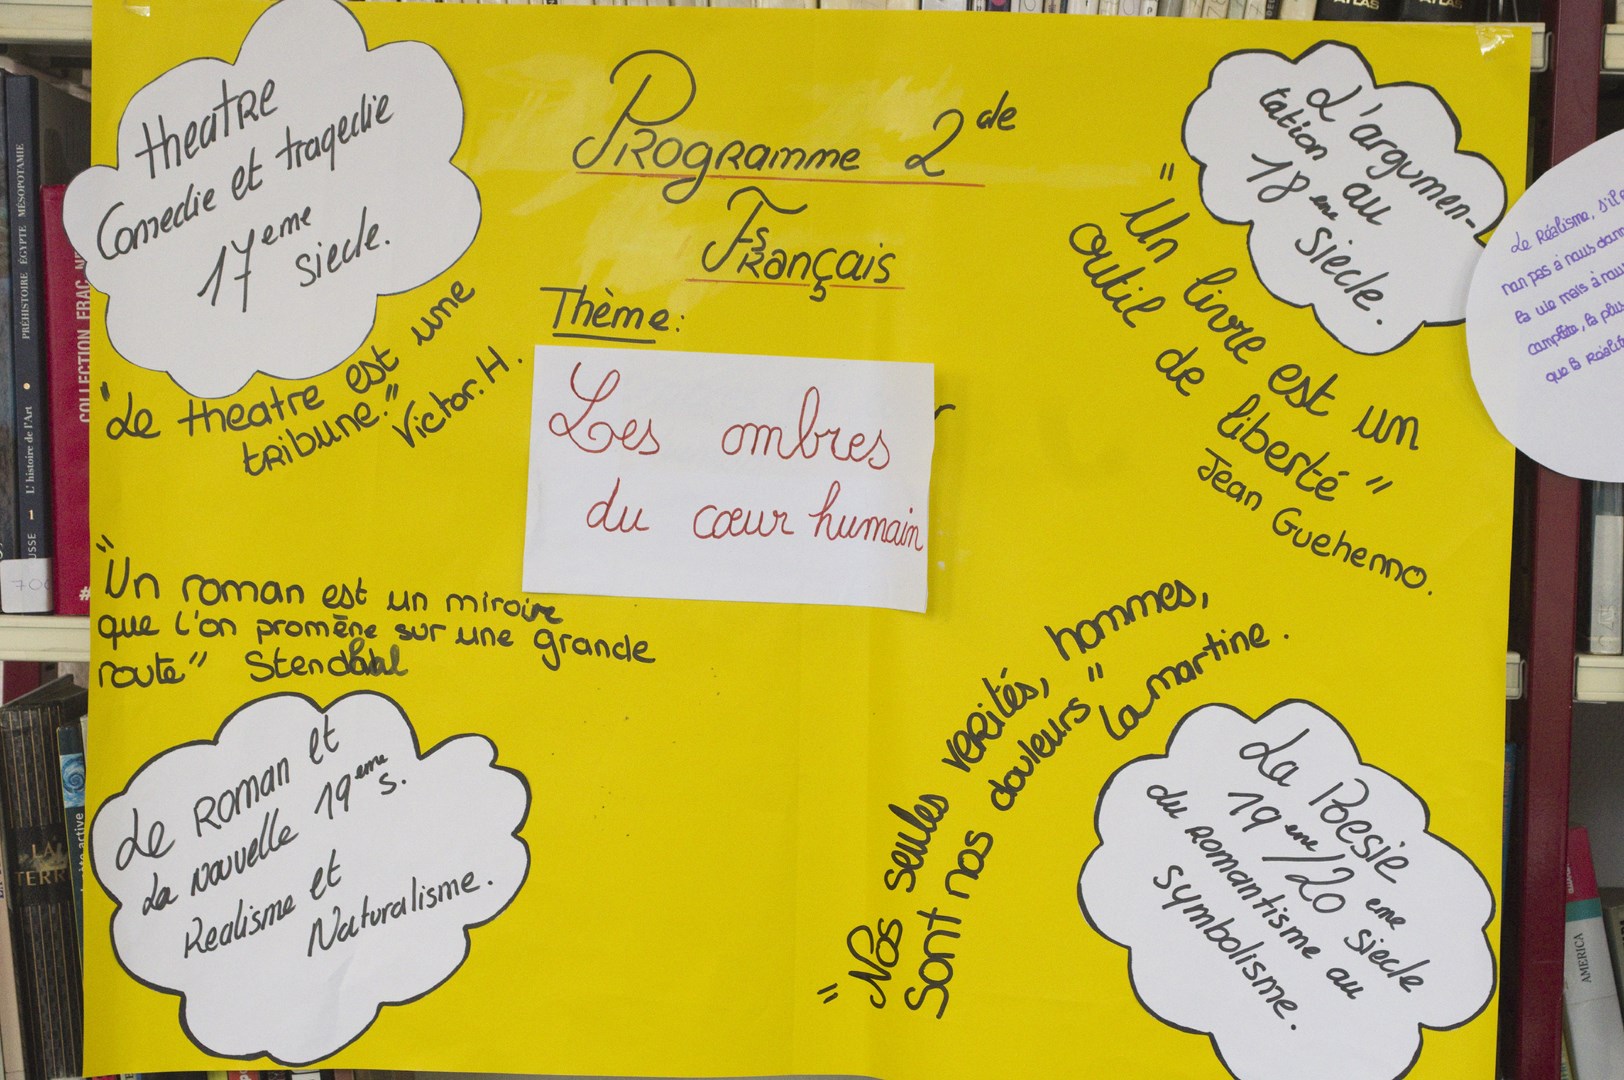 Programme 2de
Français
Thème:
Les ombres
du cœur humain
theatre
Comedie et tragedie
17eme
siecle.
"Le theatre est une
tribune."
Victor.H.
L'argumen-
tation au
18eme
siecle.
"Un livre est un
outil de liberté"
Jean Guehenno.
"Un roman est un miroire
que l'on promène sur une grande
route" Stendhal
Le Roman et
La nouvelle 19eme s.
Realisme et
Naturalisme.
"Nos seules verités, hommes,
sont nos douleurs"
La martine.
La Poesie
19eme/20eme siecle
du romantisme au
symbolisme.
Le Réalisme, s'il
non pas à nous
la vie mais à nous
complète, la plus
que la
PRÉHISTOIRE ÉGYPTE MÉSOPOTAMIE
L'histoire de l'Art
1
COLLECTION FRAC
700
LA
TERRE
active
AMERICA
ATLAS
ATLAS